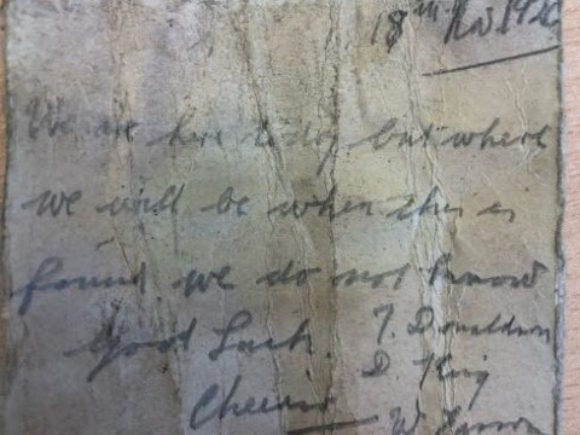 18th Nov.
We are here today but where
we will be when this is
found we do not know
Good Luck. T. Donaldson
D. King
Cheerio W.